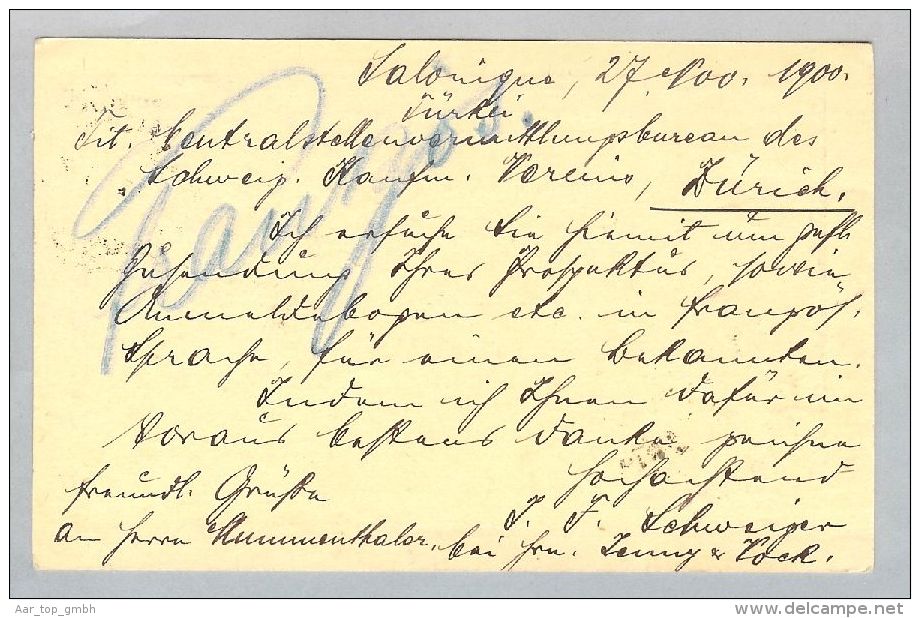 Salonique, 27. Nov. 1900.
Türkei.
Tit. Centralstellenvermittlungsbureau des
Schweiz. Kaufm. Vereins, Zürich.
Ich ersuche Sie hiemit um gefl.
Zusendung Ihres Prospektus, sowie
Anmeldebogen etc. in französ.
Sprache, für einen Bekannten.
Indem ich Ihnen dafür im
Voraus bestens danke, zeichne
Hochachtend
J. F. Schweizer
freundl. Grüsse
an Herrn Mummenthaler, bei Hrn. Jenny & Vock.
französ.
Aar_top_gmbh
delcampe.net